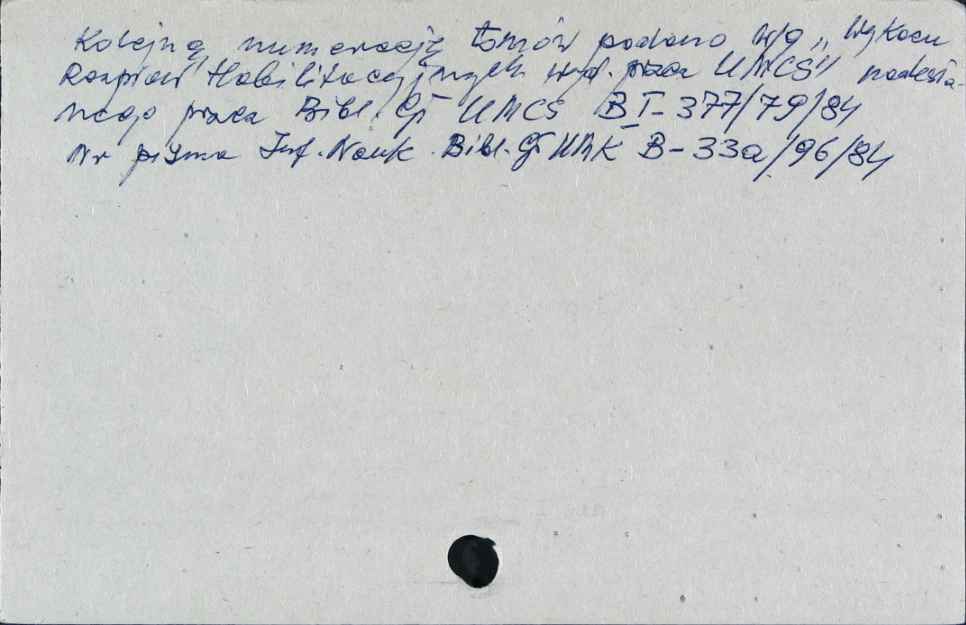 Kolejną numerację tomów podano wg „Wykazu
Rozpraw Habilitacyjnych wyd. przez UMCS" nadesła-
nego przez Bibl. Gł. UMCS B I - 377/79/84
Nr pisma Inf. Nauk. Bibl. Gł UMK B-33a/96/84